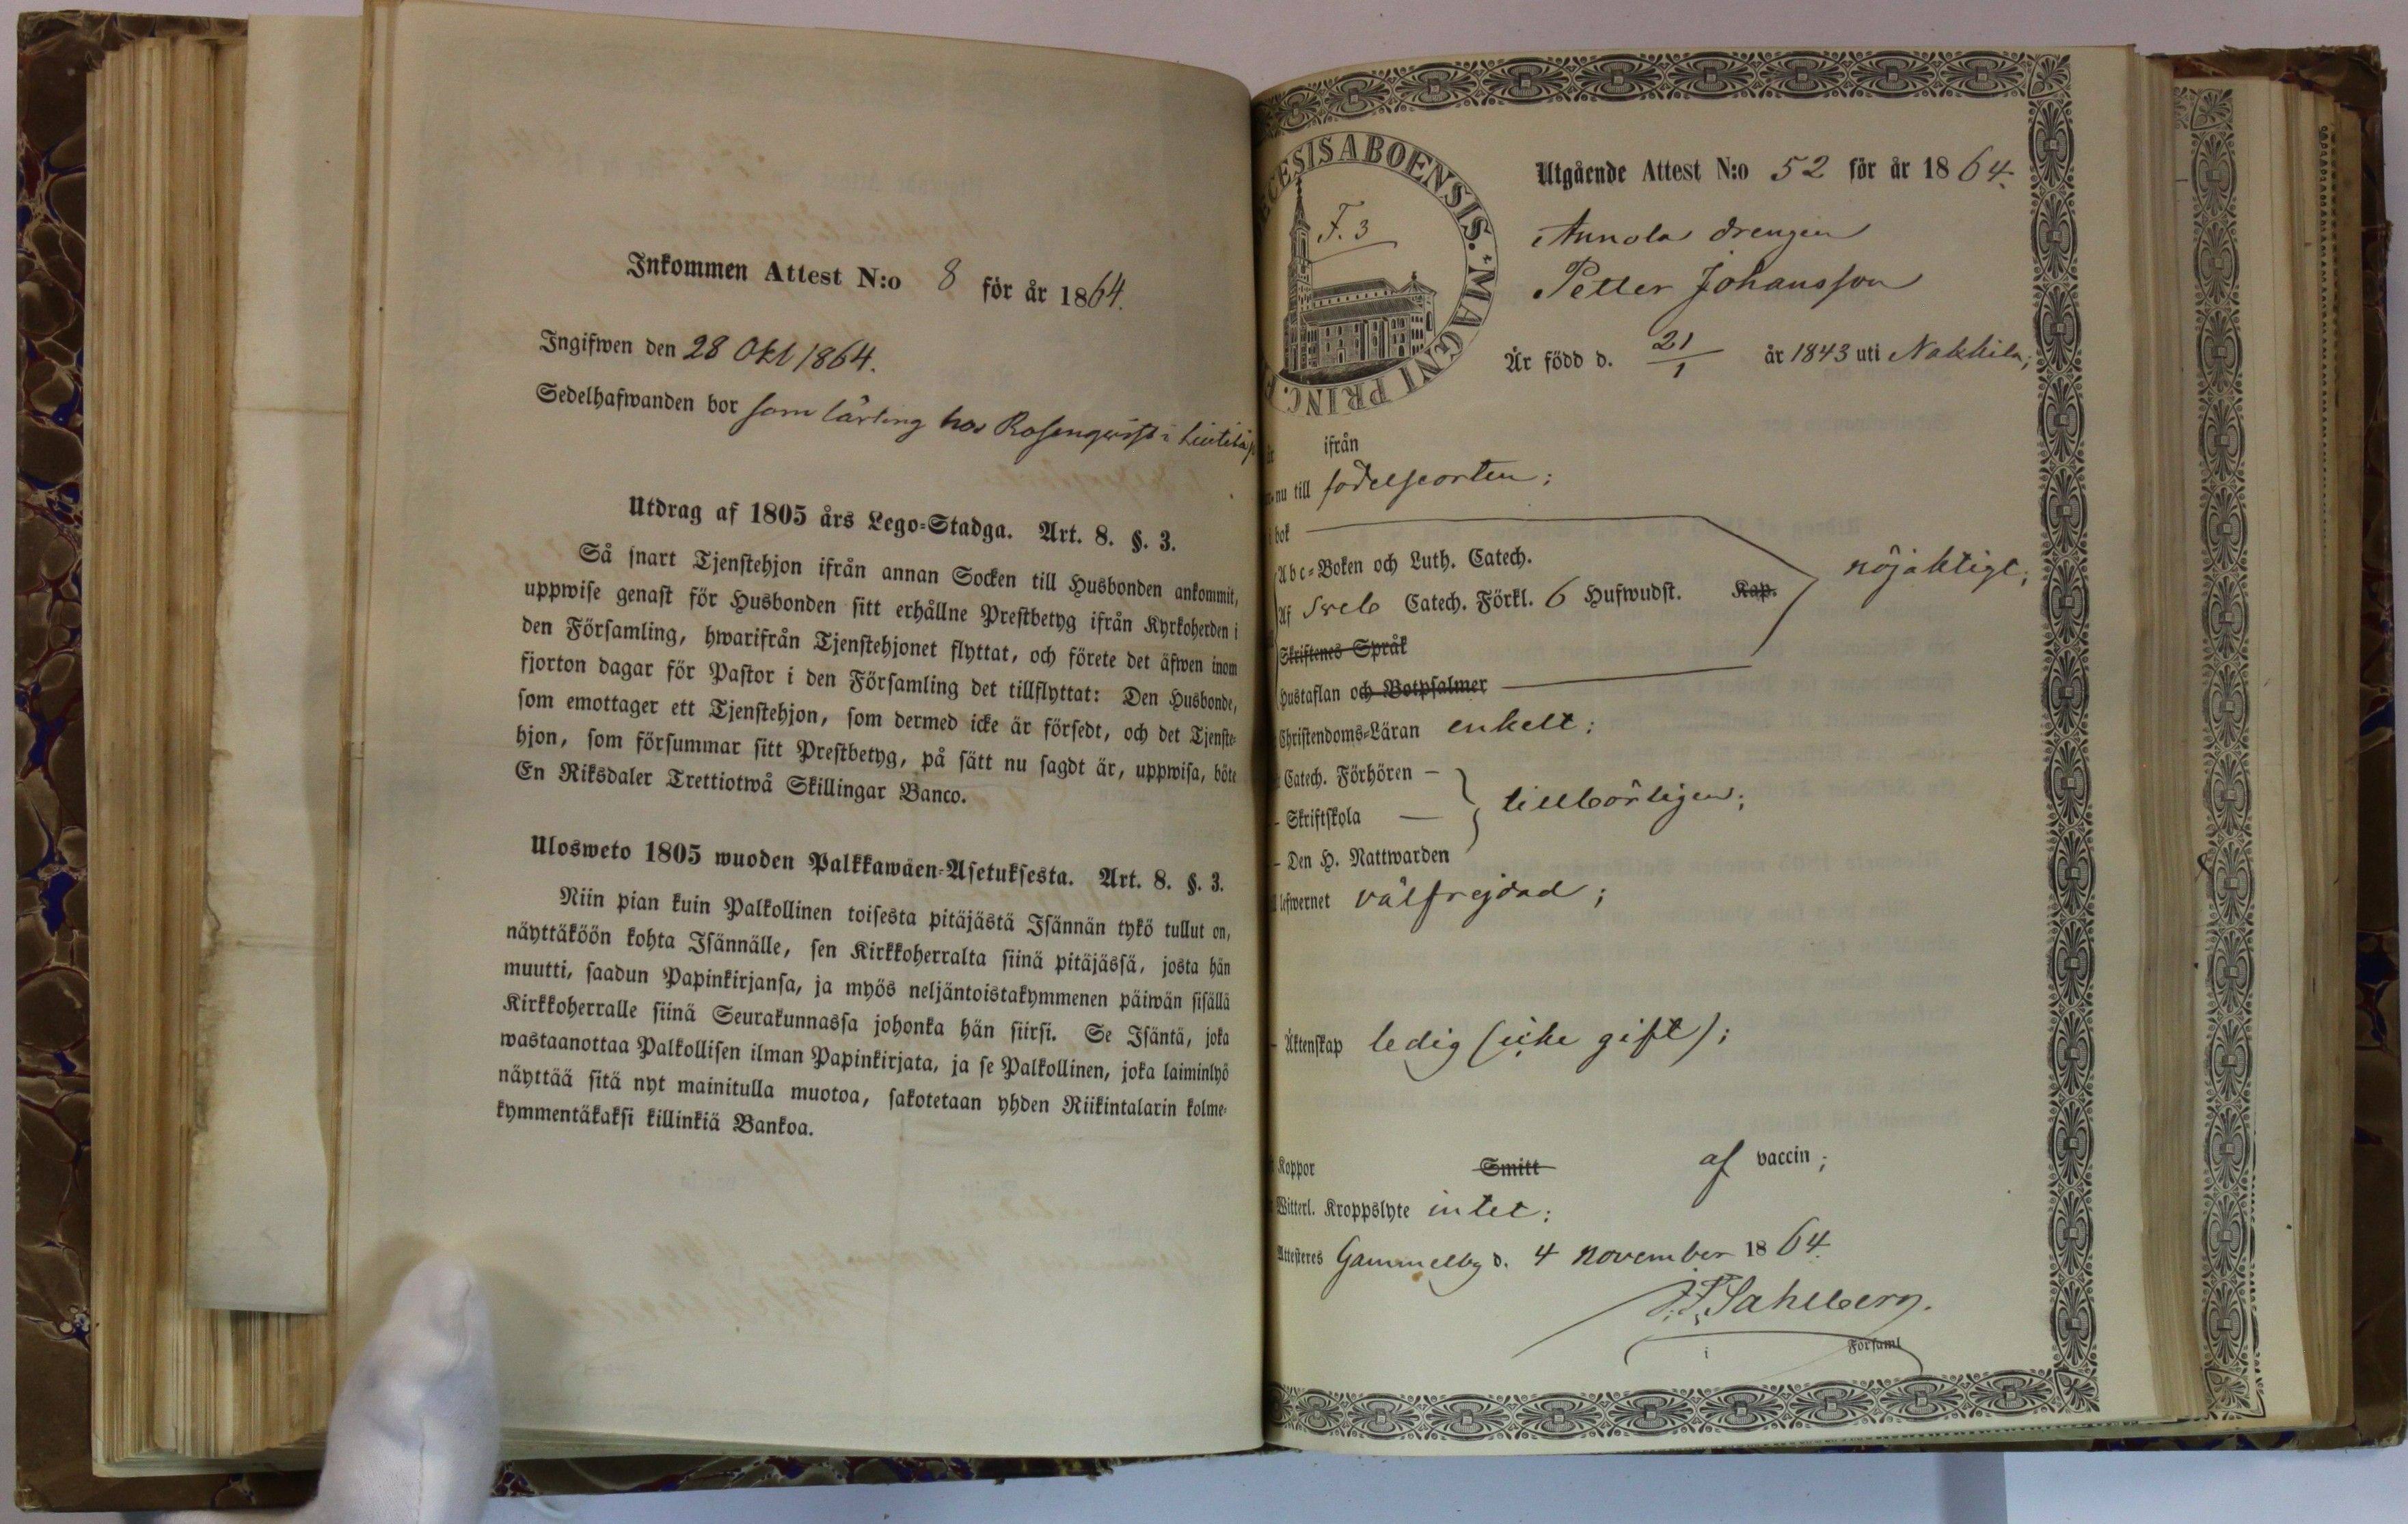 Inkommen Attest N:o 8 för år 1864.
Ingifwen den 28 Okt 1864.
Sedelhafwanden bor som lärling hos Rosenqvist i
Utdrag af 1805 års Lego-Stadga. Art. 8. §. 3.
Så snart Tjenstehjon ifrån annan Socken till Husbonden ankommit,
uppwise genast för Husbonden sitt erhållne Prestbetyg ifrån Kyrkoherden i
den Församling, hwarifrån Tjenstehjonet flyttat, och förete det äfwen inom
fjorton dagar för Pastor i den Församling det tillflyttat: Den Husbonde,
som emottager ett Tjenstehjon, som dermed icke är försedt, och det Tjenste-
hjon, som försummar sitt Prestbetyg, på sätt nu sagdt är, uppwisa, böte
En Riksdaler Trettiotwå Skillingar Banco.
Ulosweto 1805 wuoden Palkkawäen-Asetuksesta. Art. 8. §. 3.
Niin pian kuin Palkollinen toisesta pitäjästä Isännän tykö tullut on,
näyttäköön kohta Isännälle, sen Kirkkoherralta siinä pitäjässä, josta hän
muutti, saadun Papinkirjansa, ja myös neljäntoistakymmenen päiwän sisällä
Kirkkoherralle siinä Seurakunnassa johonka hän siirsi. Se Isäntä, joka
wastaanottaa Palkollisen ilman Papinkirjata, ja se Palkollinen, joka laiminlyö
näyttää sitä nyt mainitulla muotoa, sakotetaan yhden Riikintalarin kolme-
kymmentäkaksi killinkiä Bankoa.
ECESIS ABOENSIS. MAGNI PRINC. F
F. 3
Utgående Attest N:o 52 för år 1864.
Annola drengen
Petter Johansson
Är född d. 21/1 år 1843 uti Nakkila;
ifrån
nu till födelseorten;
i bok
Abc-Boken och Luth. Catech.
nöjaktigt;
Af Sveb Catech. Förkl. 6 Hufwudst. Kap.
Skriftenes Språk
Hustaflan och Botpsalmer
Christendoms-Läran enkelt;
Catech. Förhören –
– Skriftskola — tillbörligen;
– Den H. Nattwarden
lefwernet välfrejdad;
– Äktenskap ledig (icke gift);
Koppor Smitt af vaccin;
Witterl. Kroppslyte intet;
Attesteres Gammelby d. 4 November 1864.
J. F. Sahlberg.
i Församl